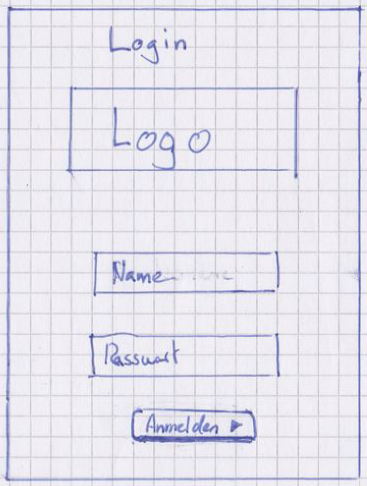 Login
Logo
Name
Passwort
Anmelden ▶